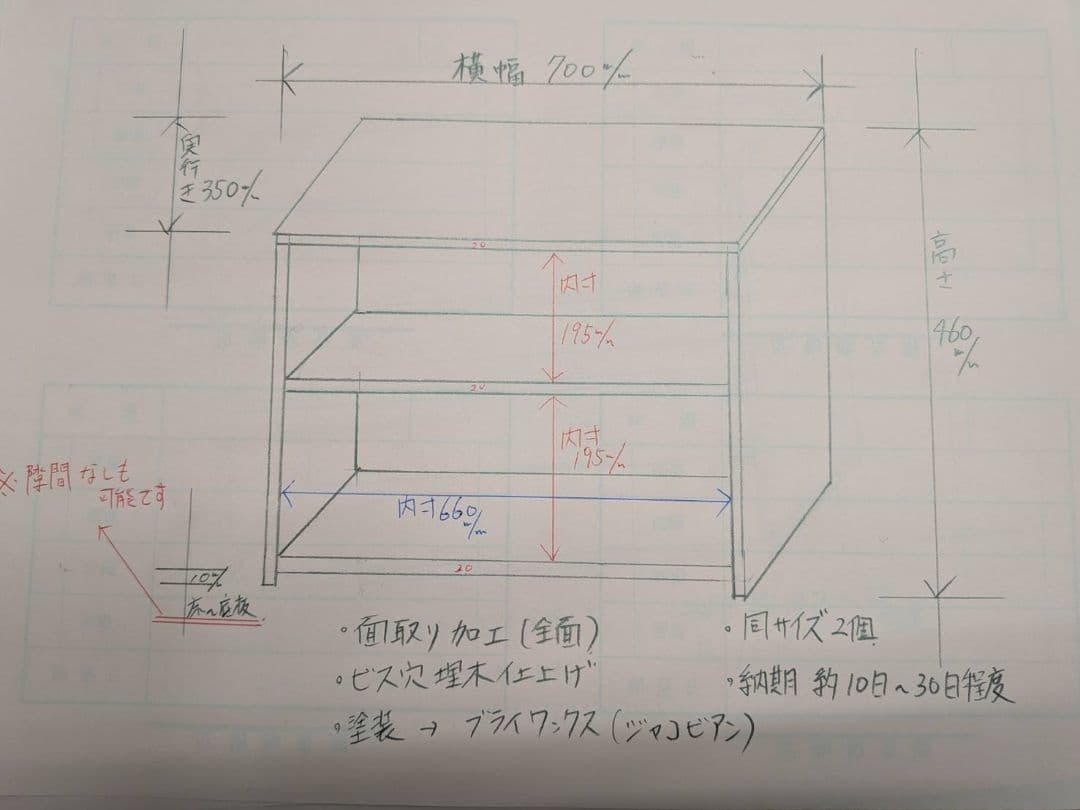 横幅 700m/m
奥行き350m/m
高さ
460m/m
20
内寸
195m/m
20
内寸
195m/m
内寸660m/m
20
※隙間なしも
可能です
10m/m
床〜底板
・面取り加工(全面)
・ビス穴埋木仕上げ
・塗装→ブライワックス(ジャコビアン)
・同サイズ2個
・納期 約10日〜30日程度